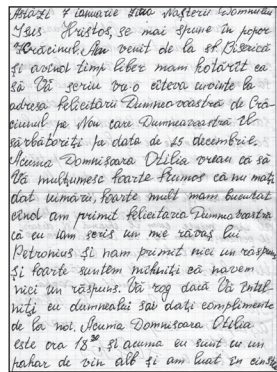 Astazi 7 ianuarie Ziua Nasterii Domnului
Isus Hristos, se mai spune in popor
Kracinul. Am venit de la sf. Biserică
și avînd timp liber mam hotărît ca
să Vă scriu vr-o cîteva cuvinte la
adresa felicitării Dumneavoastră de Cră-
ciunul pe Nou care Dumneavoastră îl
sărbătoriți pe data de 25 decembrie.
Acuma Domnișoara Otilia vreau ca să
Vă mulțumesc foarte frumos că nu mați
dat uitării, foarte mult mam bucurat
cînd am primit felicitarea Dumneavoastră
că eu iam scris un mic răvaș lui
Petronius și nam primit nici un răspuns
și foarte suntem mîhniți că navem
nici un răspuns. Vă rog dacă Vă întîl-
niți cu dumnealui săi dați complimente
de la noi. Acuma Domnișoara Otilia
este ora 18²⁰, și acuma eu sunt cu un
pahar de vin alb și am luat în cinste